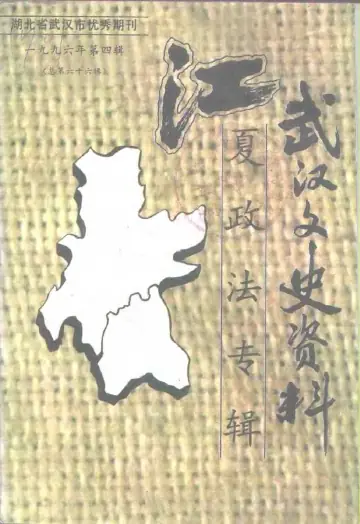 湖北省武汉市优秀期刊
一九九六年第四辑
（总第六十六辑）
武汉文史资料
江夏政法专辑